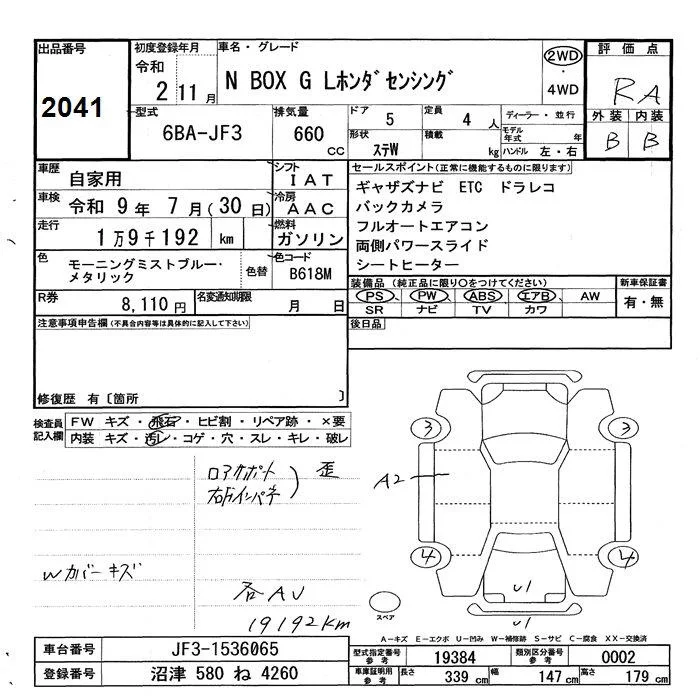 出品番号
2041
初度登録年月
令和
2 11月
車名・グレード
N BOX G Lホンダセンシング
2WD
・
4WD
評価点
RA
外装 内装
B B
型式
6BA-JF3
排気量
660
cc
ドア
5
定員
4 人
形状
ステW
積載
kg
ディーラー・並行
モデル年式 年
ハンドル 左・右
車歴
自家用
シフト
IAT
車検
令和 9年 7月(30日)
冷房
AAC
走行
1万9千192 km
燃料
ガソリン
色
モーニングミストブルー・
メタリック
色替
色コード
B618M
R券
8,110円
名変通知期限
月 日
セールスポイント(正常に機能するものに限ります)
ギャザズナビ ETC ドラレコ
バックカメラ
フルオートエアコン
両側パワースライド
シートヒーター
装備品(純正品に限り○をつけてください)
PS、 PW、 ABS エアB、 AW
SR ナビ TV カワ
新車保証書
有・無
後日品
注意事項申告欄(不具合内容等は具体的に記入して下さい)
修復歴 有〔箇所 〕
検査員
記入欄
FW キズ・飛石・ヒビ割・リペア跡・×要
内装 キズ・汚レ・コゲ・穴・スレ・キレ・破レ
ロアサポート
右ドインパネ
歪
Wカバーキズ
各AU
19192km
3
3
A2
4
4
U1
U1
スペア
A-キズ E-エクボ U-凹み W-補修跡 S-サビ C-腐食 XX-交換済
車台番号
JF3-1536065
登録番号
沼津 580 ね 4260
型式指定番号
参考
19384
類別区分番号
参考
0002
車庫証明用
参考
長さ 339 cm
幅 147 cm
高さ 179 cm